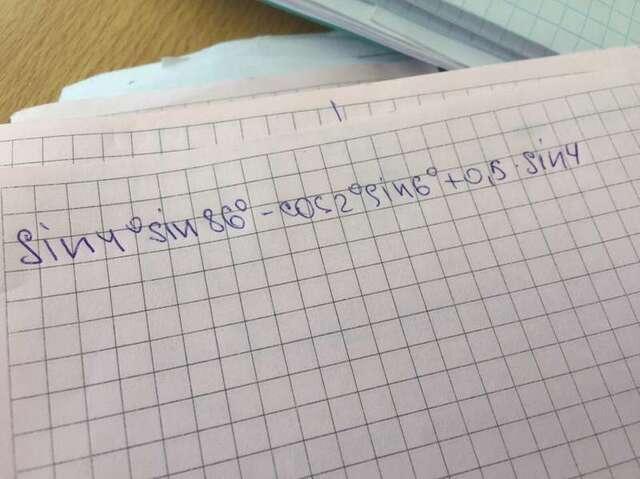 sin4°sin86°-cos2°sin6°+0,5·sin4